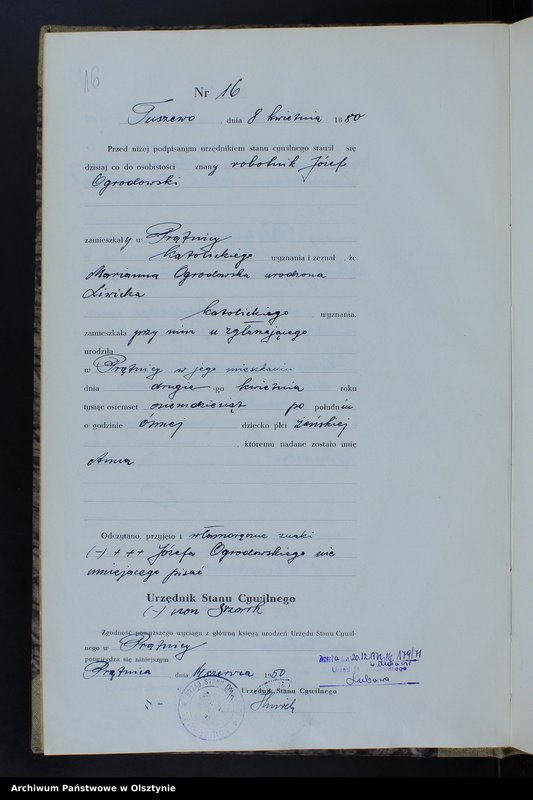 16
Nr 16
Tuszewo, dnia 8 kwietnia 1880
Przed niżej podpisanym urzędnikiem stanu cywilnego stawił się
dzisiaj co do osobistości znany robotnik Józef
Ogrodowski
zamieszkały w Prątnicy
katolickiego wyznania i zeznał, że
Marianna Ogrodowska urodzona
Liwicka
katolickiego wyznania.
zamieszkała przy nim u zgłaszającego
urodziła
w Prątnicy w jego mieszkaniu
dnia drugie -go kwietnia roku
tysiąc osiemset osiemdziesiąt po południu
o godzinie ósmej dziecko płci żeńskiej
, któremu nadane zostało imię
Anna
Odczytano, przyjęto i własnoręczne znaki
(-) +++ Józefa Ogrodowskiego nie
umiejącego pisać
Urzędnik Stanu Cywilnego
(-) von
Zgodność powyższego wyciągu z główną księgą urodzeń Urzędu Stanu Cywil-
nego w Prątnicy
potwierdza się niniejszym.
Prątnica, dnia czerwca 1950
Urzędnik Stanu Cywilnego
179/71
Lubawa
Archiwum Państwowe w Olsztynie